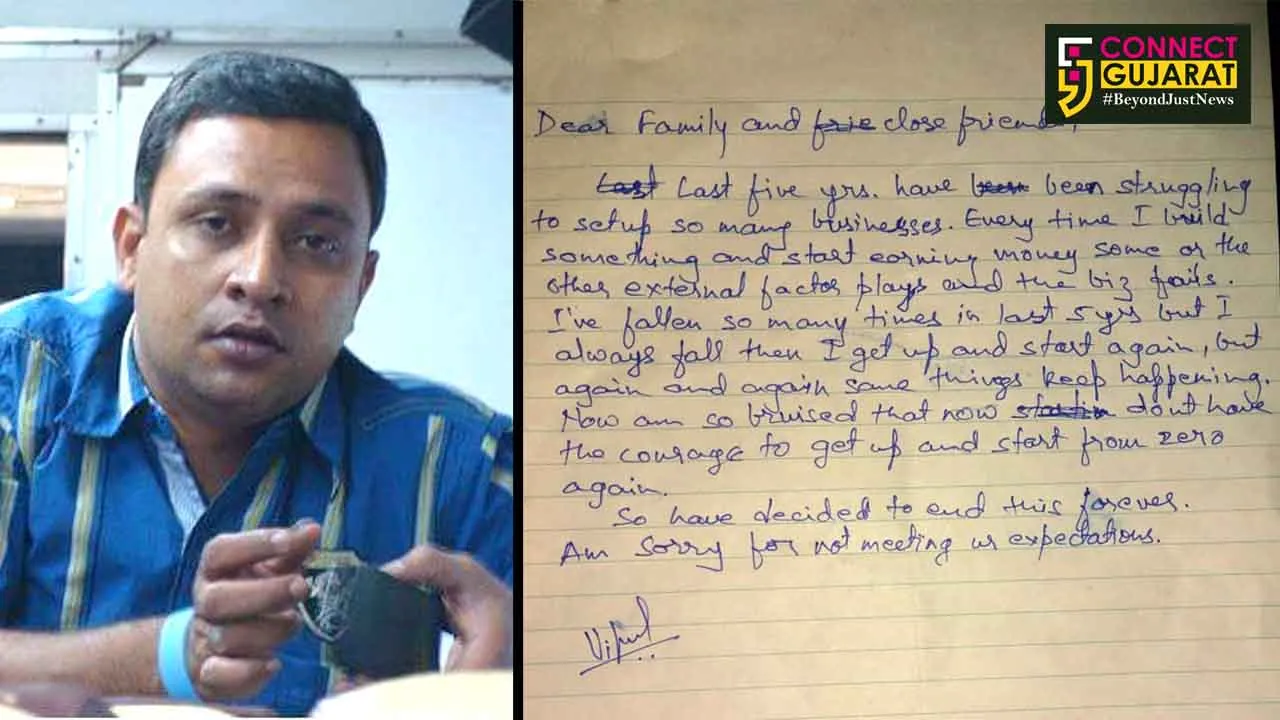 CONNECT
GUJARAT
#BeyondJustNews
Dear Family and close friend
Last five yrs. have been struggling
to setup so many businesses. Every time I build
something and start earning money some or the
other external factor plays and the biz fails.
I've fallen so many times in last 5 yrs but I
always fall then I get up and start again, but
again and again same things keep happening.
Now am so bruised that now dont have
the courage to get up and start from zero
again.
So have decided to end this forever.
Am sorry for not meeting ur expectations.
Vipul